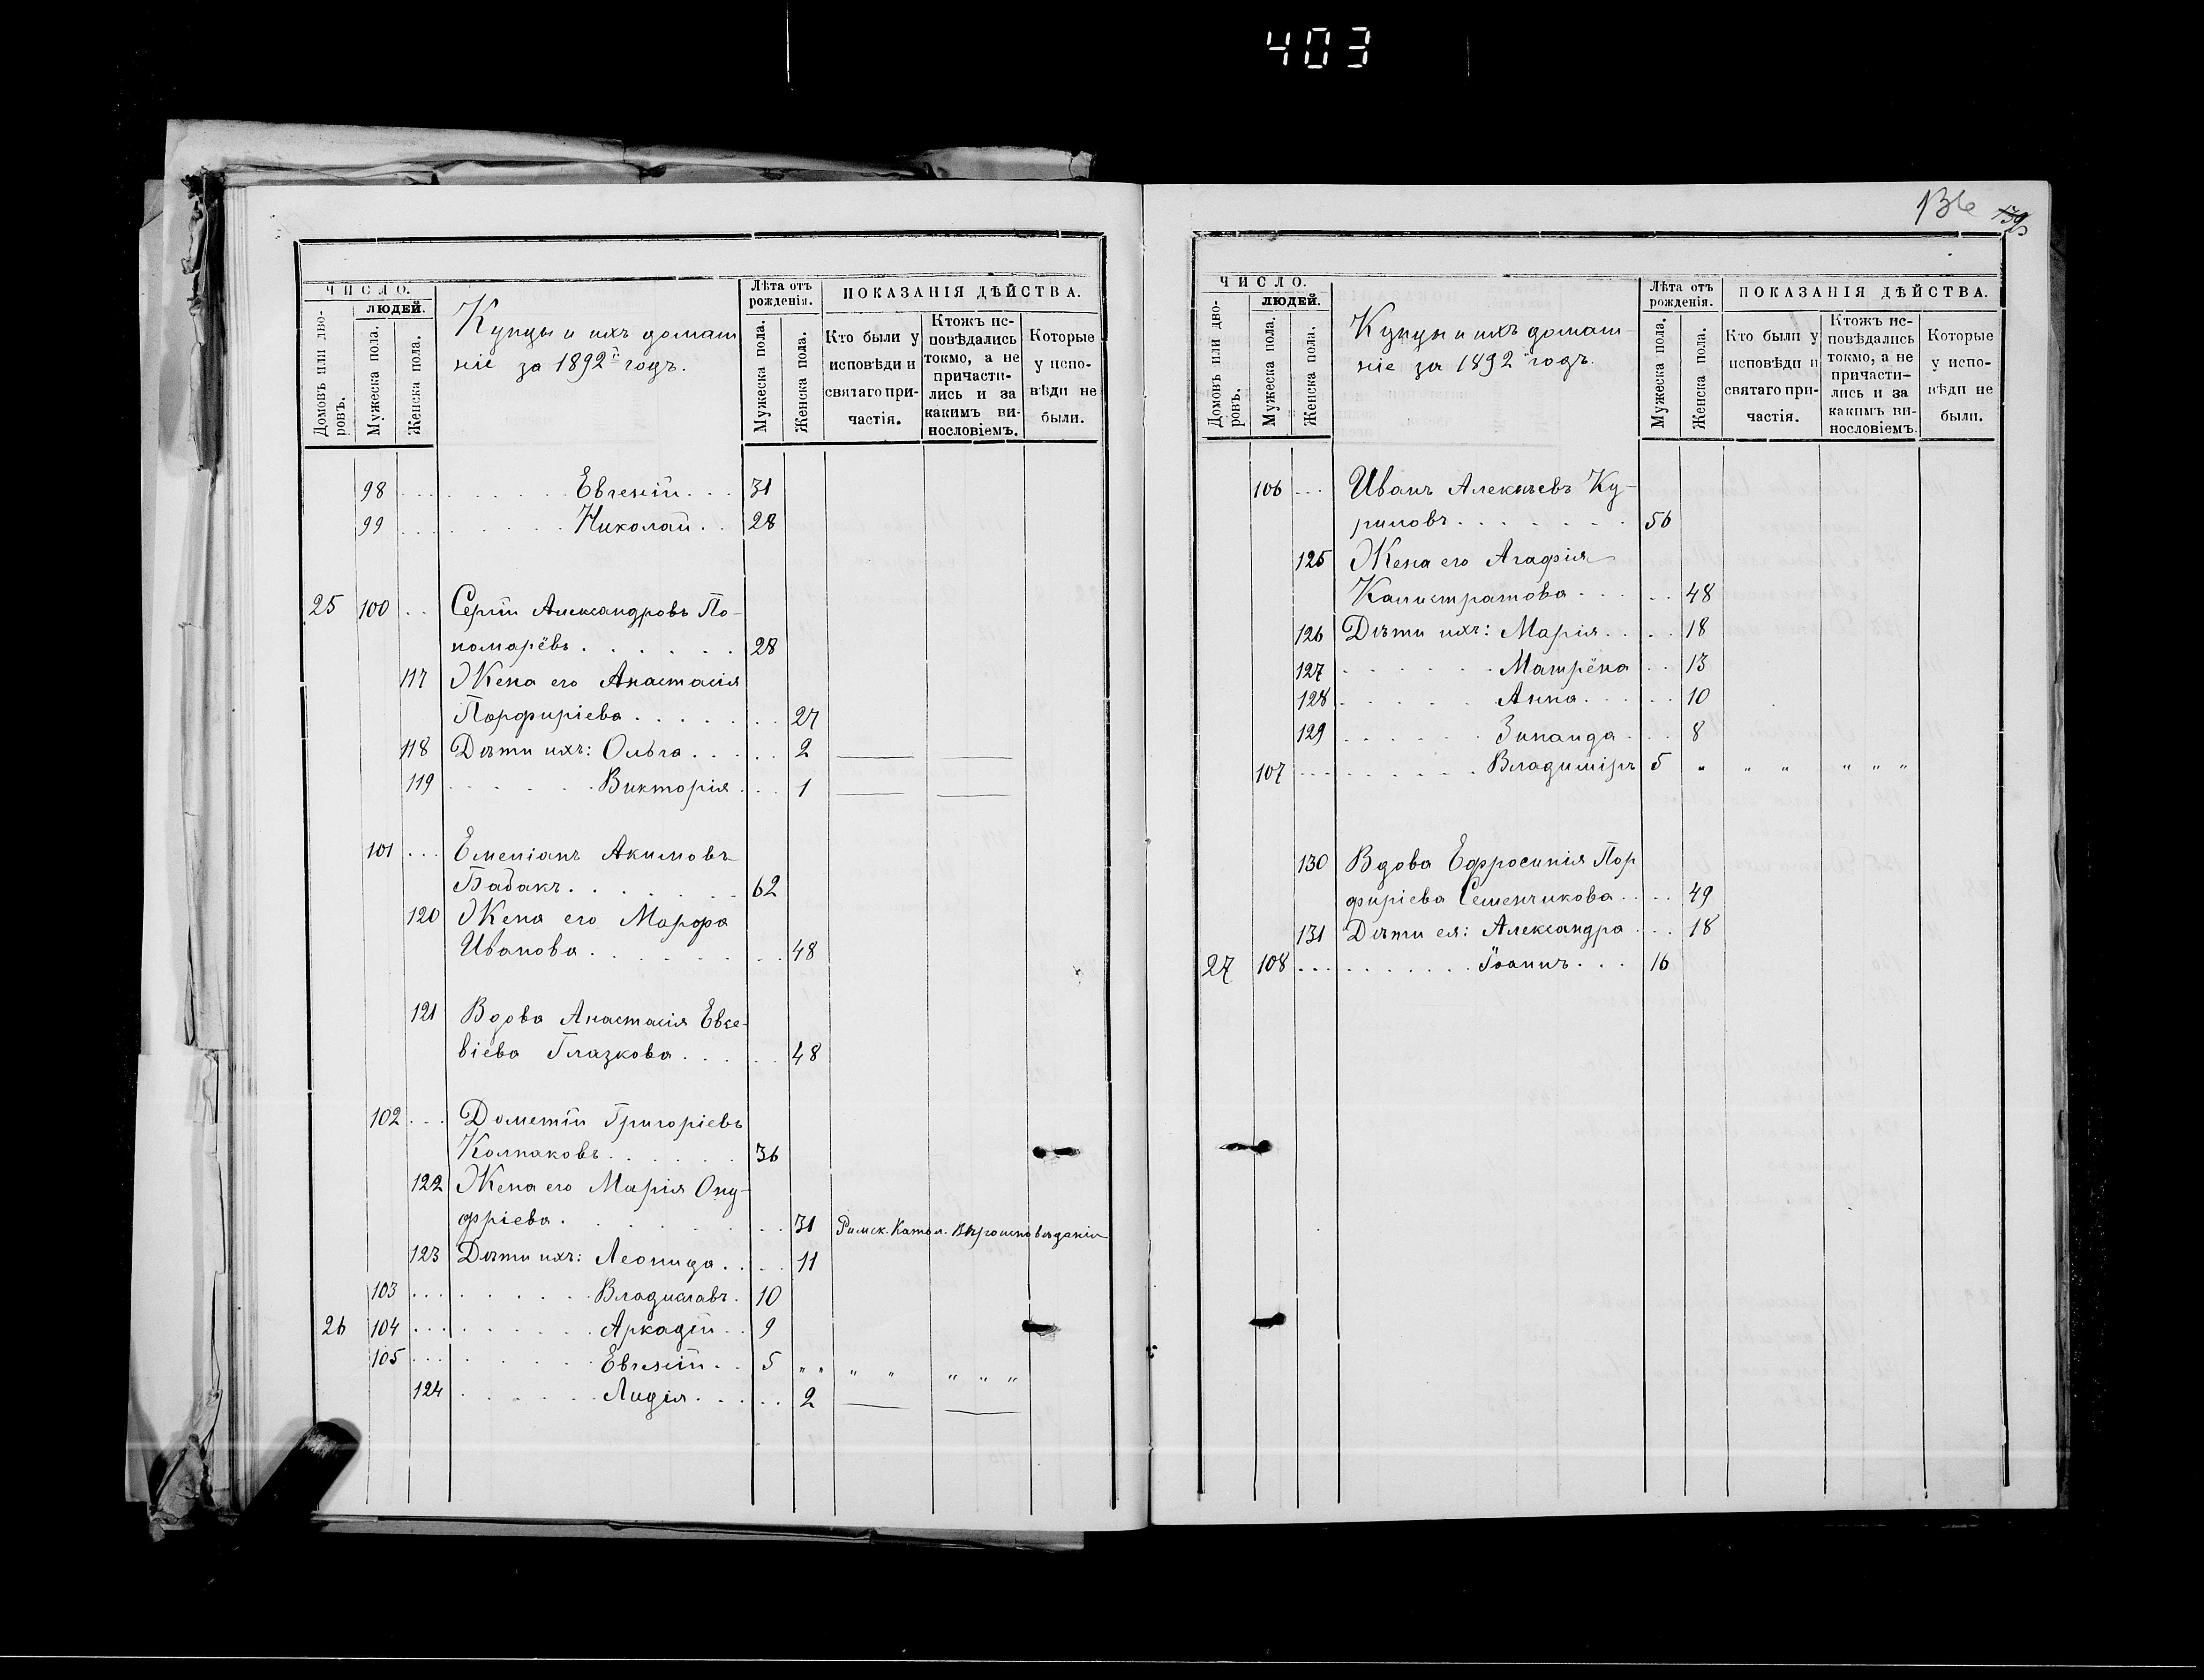 403
136 139
ЧИСЛО.
ЛЮДЕЙ.
Домовъ или дворовъ.
Мужеска пола.
Женска пола.
Купцы и ихъ домаш
ніе за 1892й годъ.
Лѣта отъ рожденія.
Мужеска пола.
Женска пола.
ПОКАЗАНІЯ ДѢЙСТВА.
Кто были у исповѣди и святаго причастія.
Ктожъ исповѣдались токмо, а не причастились и за какимъ винословіемъ.
Которые у исповѣди не были.
98 Евгеній 31
99 Николай 28
25 100 Сергій Александровъ По-
номарёвъ 28
117 Жена его Анастасія
Порфиріева 27
118 Дѣти ихъ: Ольга 2
119 Викторія 1
101 Емеліанъ Акимовъ
Бабакъ 62
120 Жена его Марфа
Иванова 48
121 Вдова Анастасія Евсе-
віева Глазкова 48
102 Дометій Григоріевъ
Колпаковъ 36
122 Жена его Марія Ону-
фріева 31 Римск. Катол. Вѣроисповѣданія
123 Дѣти ихъ: Леонида 11
103 Владиславъ 10
26 104 Аркадій 9
105 Евгеній 5 " " " " " " "
124 Лидія 2
ЧИСЛО.
ЛЮДЕЙ.
Домовъ или дворовъ.
Мужеска пола.
Женска пола.
Купцы и ихъ домаш-
ніе за 1892й годъ.
Лѣта отъ рожденія.
Мужеска пола.
Женска пола.
ПОКАЗАНІЯ ДѢЙСТВА.
Кто были у исповѣди и святаго причастія.
Ктожъ исповѣдались токмо, а не причастились и за какимъ винословіемъ.
Которые у исповѣди не были.
106 Иванъ Алексѣевъ Ку-
риловъ 56
125 Жена его Агафія
Калистратова 48
126 Дѣти ихъ: Марія 18
127 Матрёна 13
128 Анна 10
129 Зинаида 8
107 Владиміръ 5 " " " " " "
130 Вдова Ефросинія Пор
фиріева Семенчикова 49
131 Дѣти ея: Александра 18
27 108 Іоаннъ 16